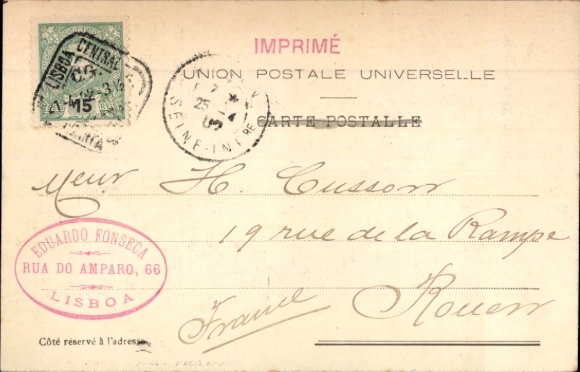 IMPRIMÉ
UNION POSTALE UNIVERSELLE
CARTE POSTALLE
LISBOA CENTRAL
15
25
SEINE-INFRE
Meur H. Cusson
19 rue de la Rampe
Rouen
France
EDUARDO FONSECA
RUA DO AMPARO, 66
LISBOA
Côté réservé à l'adresse